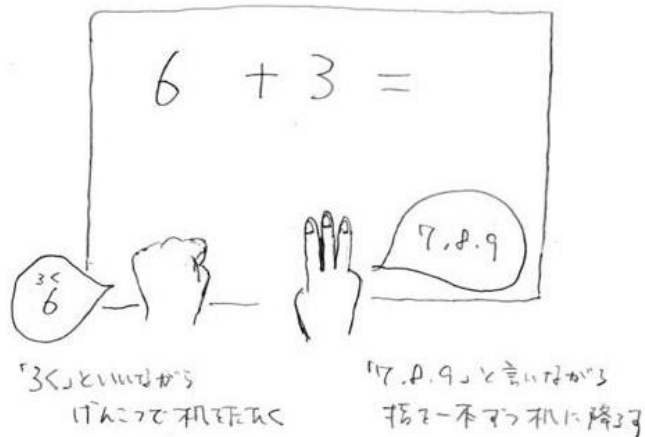 6 + 3 =
ろく
6
7.8.9
「ろく」といいながら
げんこつで机をたたく
「7.8.9」と言いながら
指を一本ずつ机に降ろす